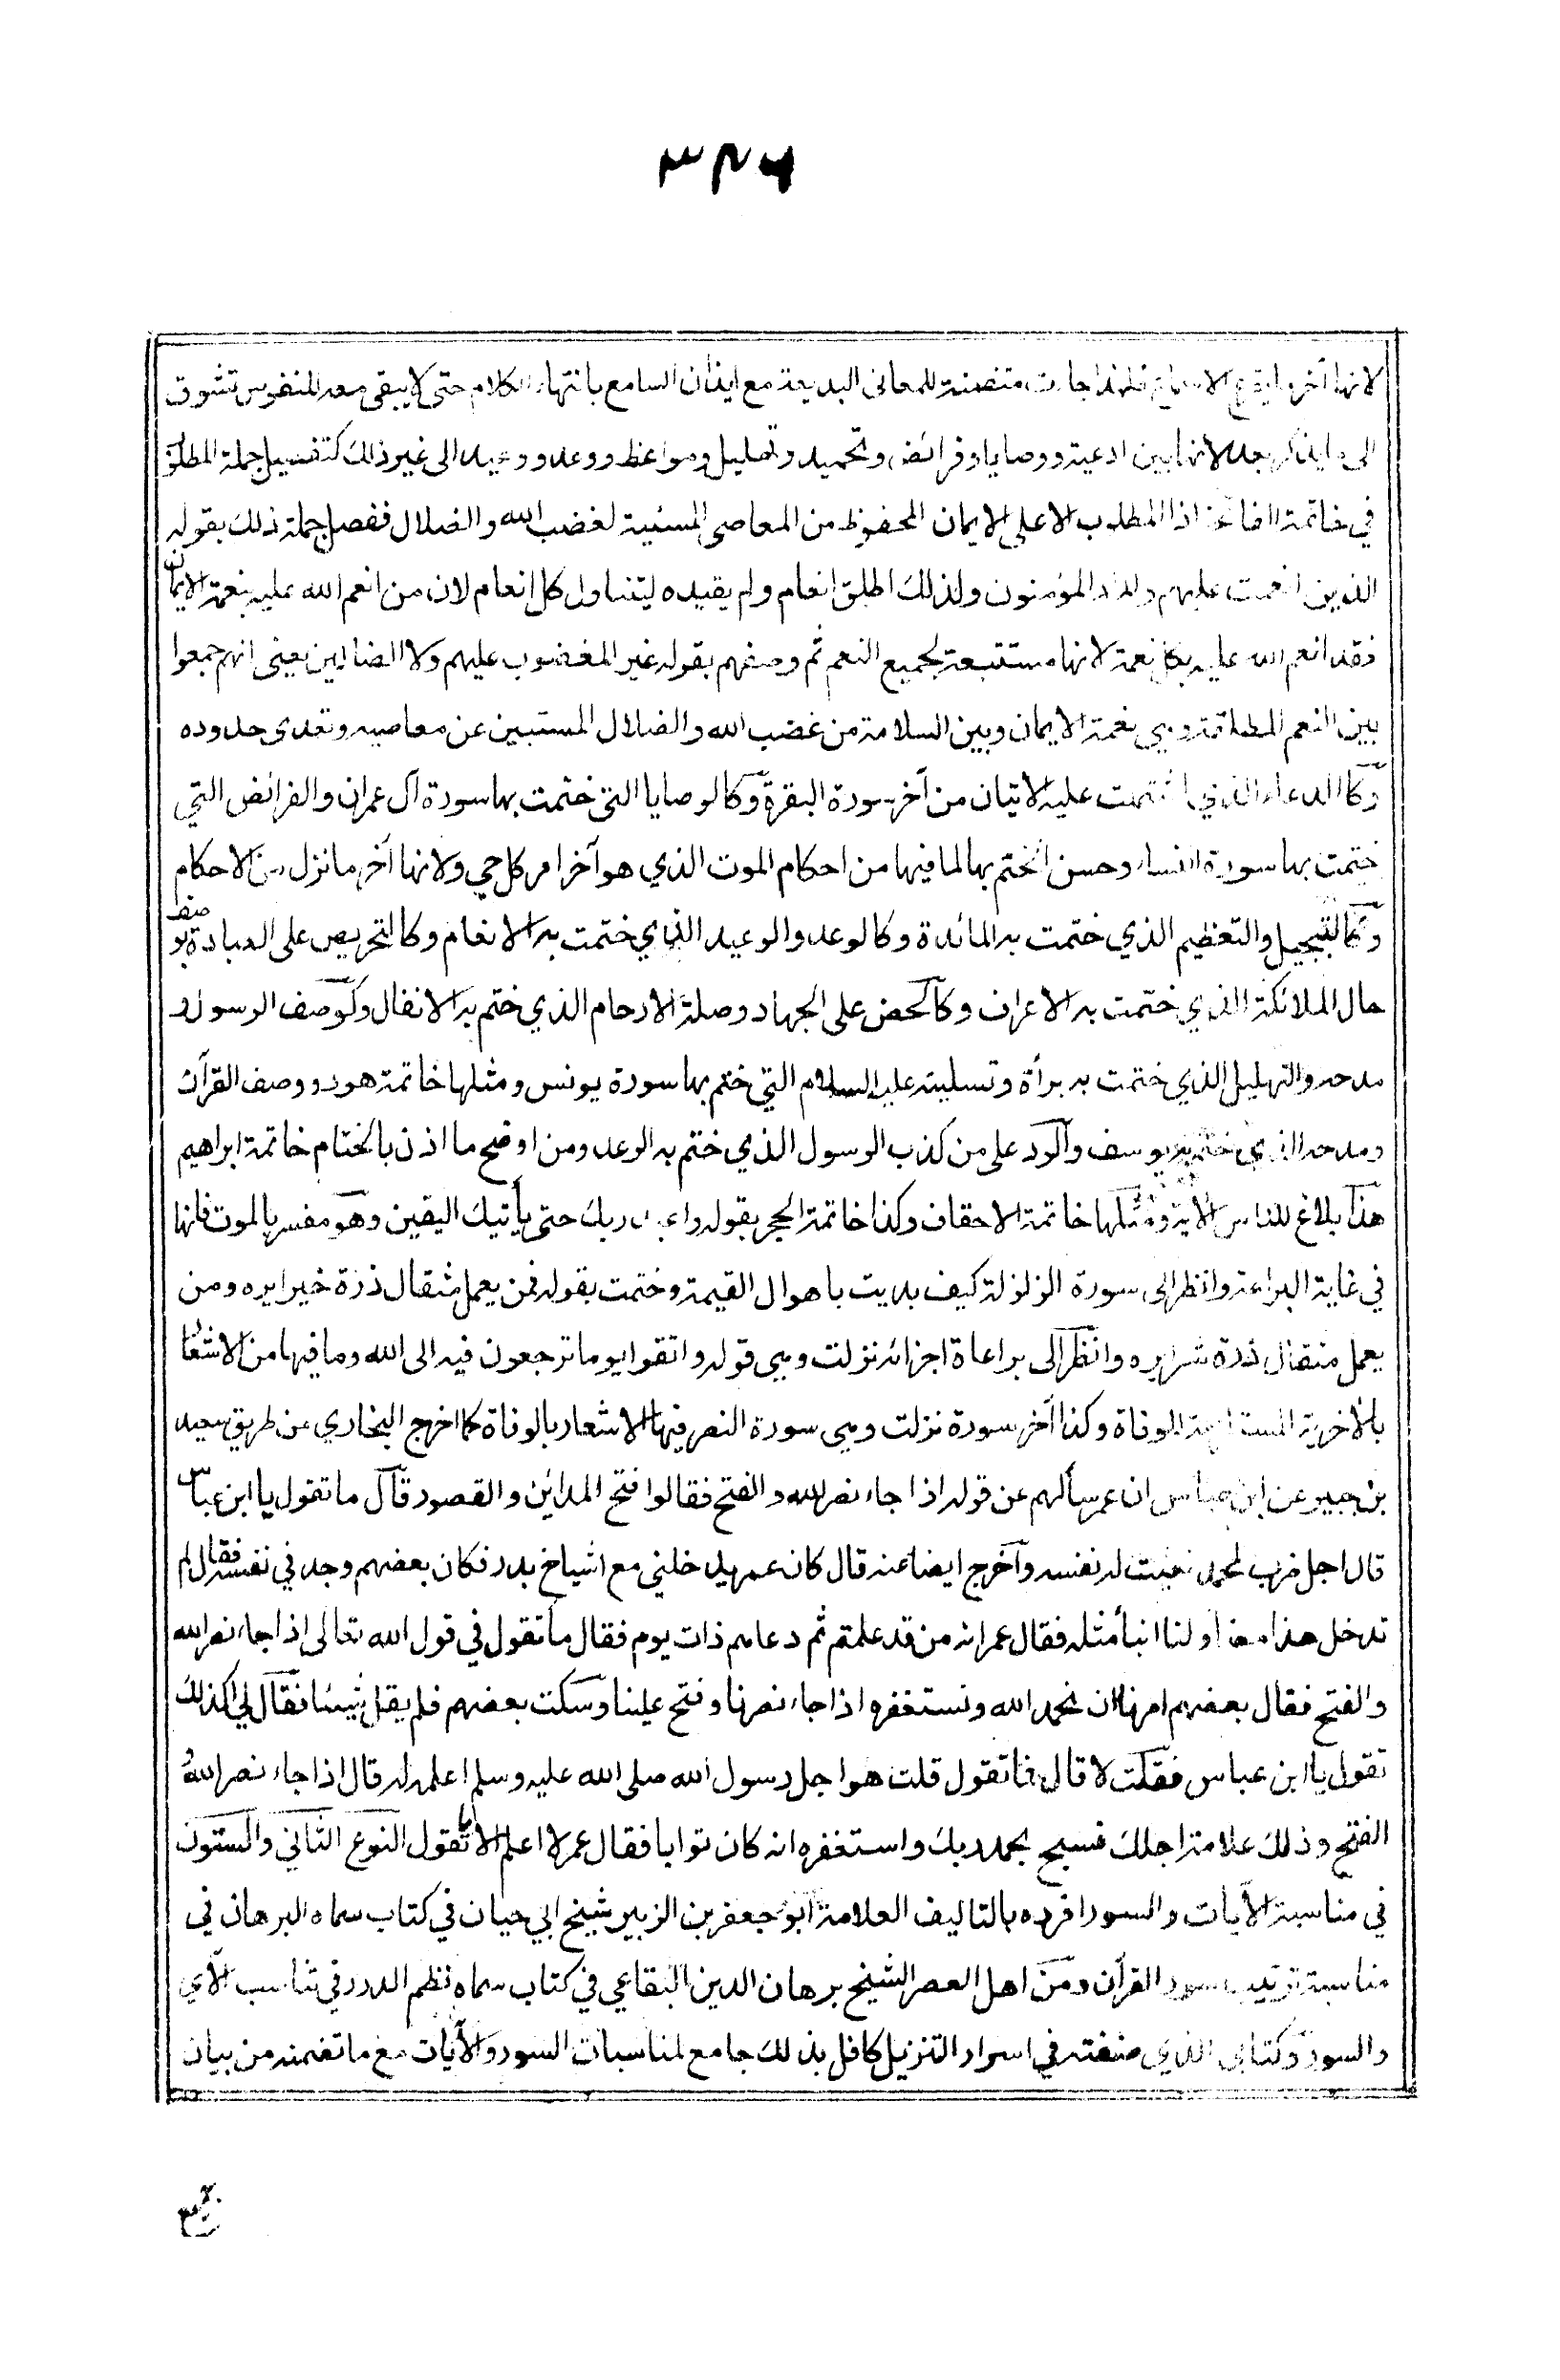 ٣٤٦
لانها آخر ما يقرع الاسماع فلهذا جاءت متضمنة للمعانى البديعة مع ايذان السامع بانتهاء الكلام حتى لا يبقى معه للنفوس تشوق
الى ما يذكر بعد لانها بين ادعية ووصايا وفرائض وتحميد وتهليل ومواعظ ووعد ووعيد الى غير ذلك كتفصيل جملة المطلوب
في خاتمة الفاتحة اذ المطلوب الاعلى الايمان المحفوظ من المعاصى المسببة لغضب الله والضلال ففصل جملة ذلك بقوله
الذين انعمت عليهم والمراد المؤمنون ولذلك اطلق انعام ولم يقيده ليتناول كل انعام لان من انعم الله عليه بنعمة الايمان
فقد انعم الله عليه بكل نعمة لانها مستتبعة لجميع النعم ثم وصفهم بقوله غير المغضوب عليهم ولا الضالين يعنى انهم جمعوا
بين النعم المطلقة وهي نعمة الايمان وبين السلامة من غضب الله والضلال المسببين عن معاصيه وتعدى حدوده
وكالدعاء الذي اشتملت عليه الايتان من آخر سورة البقرة وكالوصايا التى ختمت بها سورة آل عمران والفرائض التي
ختمت بها سورة النساء وحسن الختم بها لما فيها من احكام الموت الذي هو آخر امر كل حي ولانها آخر ما نزل من الاحكام
وكالتبجيل والتعظيم الذي ختمت به المائدة وكالوعد والوعيد الذي ختمت به الانعام وكالتحريض على العبادة بوصف
حال الملائكة الذي ختمت به الاعراف وكالحض على الجهاد وصلة الارحام الذي ختم به الانفال وكوصف الرسول و
مدحه والتهليل الذي ختمت به براءة وتسليته عليه السلام التي ختم بها سورة يونس ومثلها خاتمة هود ووصف القرآن
ومدحه الذي ختم به يوسف والرد على من كذب الرسول الذي ختم به الرعد ومن اوضح ما اذن بالختام خاتمة ابراهيم
هذا بلاغ للناس الاية ومثلها خاتمة الاحقاف وكذا خاتمة الحجر بقوله واعبد ربك حتى يأتيك اليقين وهو مفسر بالموت فانها
في غاية البراعة وانظر الى سورة الزلزلة كيف بديت باهوال القيمة وختمت بقوله فمن يعمل مثقال ذرة خيرا يره ومن
يعمل مثقال ذرة شرا يره وانظر الى براعاة اجزائه نزلت وهي قوله واتقوا يوما ترجعون فيه الى الله وما فيها من الاشعار
بالآخرية المستلزمة للوفاة وكذا آخر سورة نزلت وهي سورة النصر فيها الاشعار بالوفاة كما اخرج البخاري من طريق سعيد
بن جبير عن ابن عباس ان عمر سألهم عن قوله اذا جاء نصر الله والفتح فقالوا فتح المدائن والقصور قال ما تقول يا ابن عباس
قال اجل ضرب لمحمد نعيت له نفسه وآخرج ايضا عنه قال كان عمر يدخلني مع اشياخ بدر فكان بعضهم وجد في نفسه فقال لم
تدخل هذا معنا ولنا ابنأ مثله فقال عمر انه من قد علمتم ثم دعاهم ذات يوم فقال ما تقول في قول الله تعالى اذا جاء نصر الله
والفتح فقال بعضهم امرنا ان نحمد الله ونستغفره اذا جاء نصرنا وفتح علينا وسكت بعضهم فلم يقل شيئا فقال لي اكذلك
تقول يا ابن عباس فقلت لا قال فما تقول قلت هو اجل رسول الله صلى الله عليه وسلم اعلمه له قال اذا جاء نصر الله و
الفتح وذلك علامة اجلك فسبح بحمد ربك واستغفره انه كان توابا فقال عمر لا اعلم الا ما تقول النوع الثاني والستون
في مناسبة الآيات والسور افرده بالتاليف العلامة ابو جعفر بن الزبير شيخ ابي حيان في كتاب سماه البرهان في
مناسبة ترتيب سور القرآن ومن اهل العصر الشيخ برهان الدين البقاعي في كتاب سماه نظم الدرر في تناسب الآي
والسور وكتابي الذي صنفته في اسرار التنزيل كافل بذلك جامع لمناسبات السور والآيات مع ما تضمنه من بيان